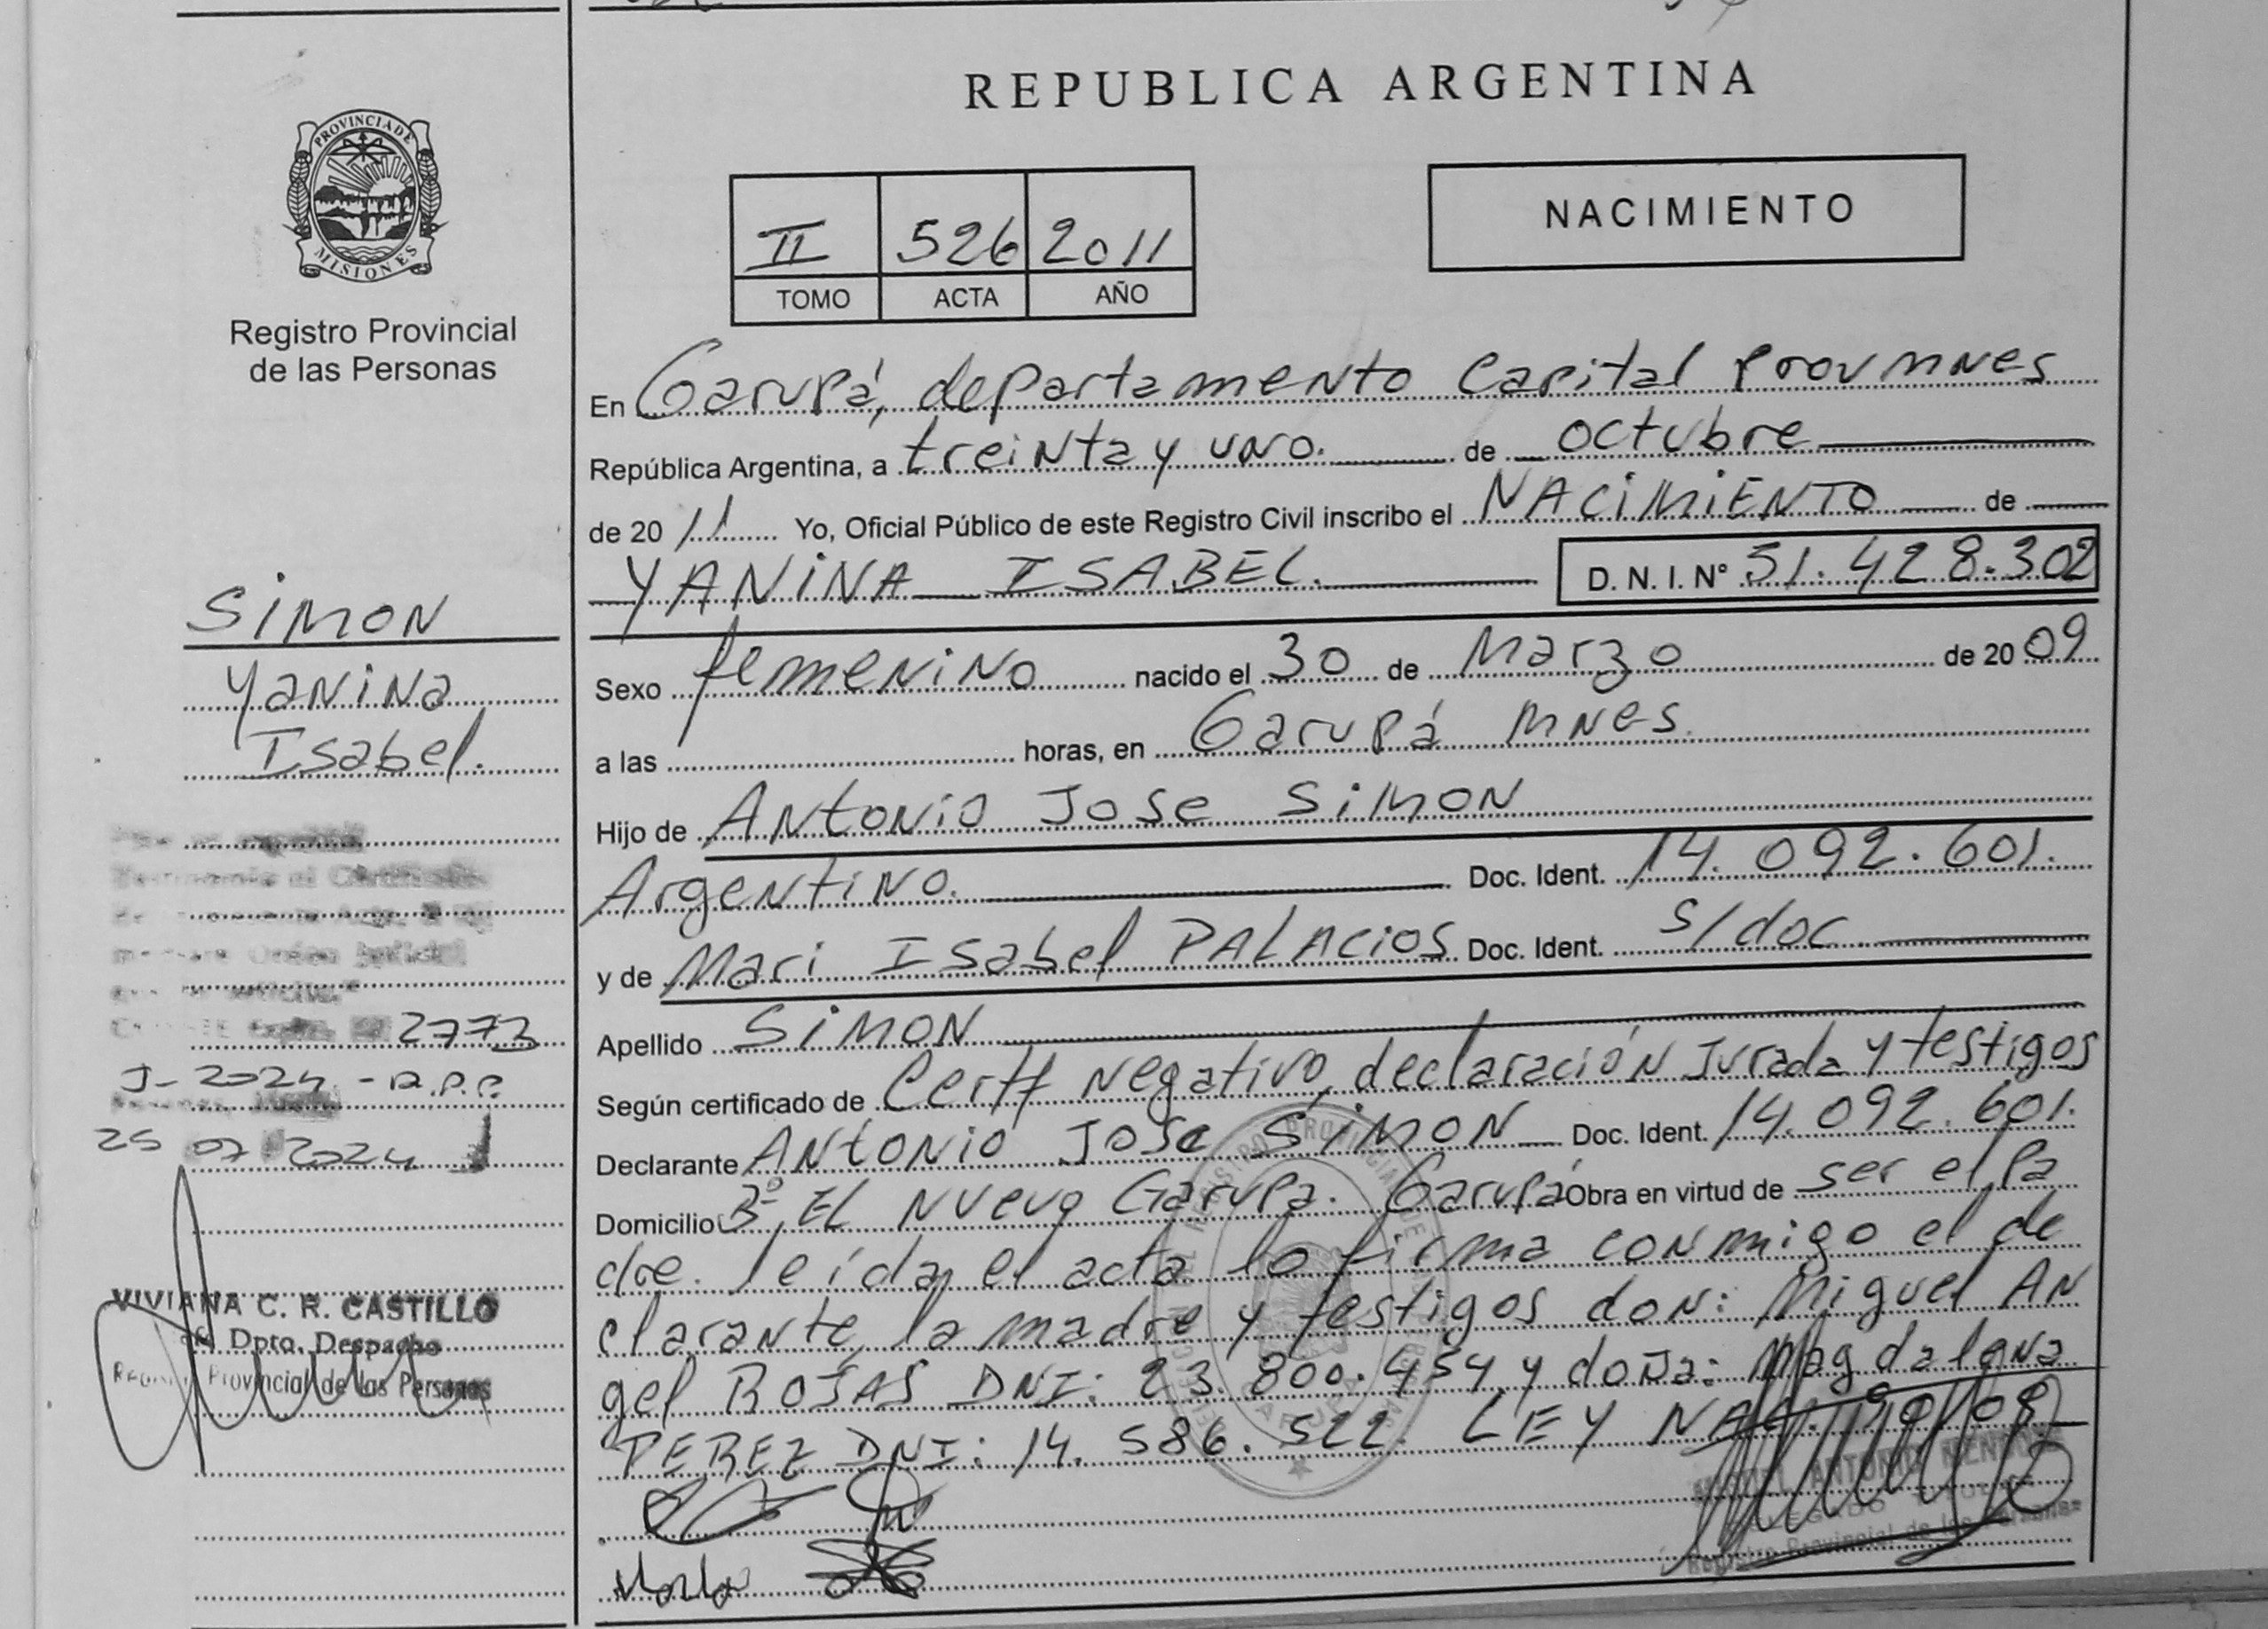 REPUBLICA ARGENTINA
PROVINCIA DE
MISIONES
Registro Provincial
de las Personas
II 526 2011
TOMO ACTA AÑO
NACIMIENTO
En Garupá, departamento Capital Prov Mnes
República Argentina, a treinta y uno. de octubre
de 20 11 Yo, Oficial Público de este Registro Civil inscribo el NACIMIENTO de
YANINA ISABEL. D. N. I. N° 51.428.302
Sexo femenino nacido el 30 de Marzo de 20 09
a las horas, en Garupá Mnes.
Hijo de Antonio Jose SIMON
Argentino. Doc. Ident. 14.092.601.
y de Mari Isabel PALACIOS Doc. Ident. S/doc
Apellido SIMON
Según certificado de Certf negativo, declaración Jurada y testigos
Declarante ANTONIO JOSE SIMON Doc. Ident. 14.092.601.
Domicilio B° EL Nuevo Garupa. Garupá Obra en virtud de ser el Pa
dre. leída el acta lo firma conmigo el de
clarante, la madre y testigos don: Miguel AN
gel ROJAS DNI: 23.800.454 y doña: Magdalena
PEREZ DNI: 14.586.522. LEY
Registro Provincial de las Personas
SIMON
Yanina
Isabel.
2773
J-2024
25 07 2024
VIVIANA C. R. CASTILLO
Dpto. Despacho
Provincial de las Personas